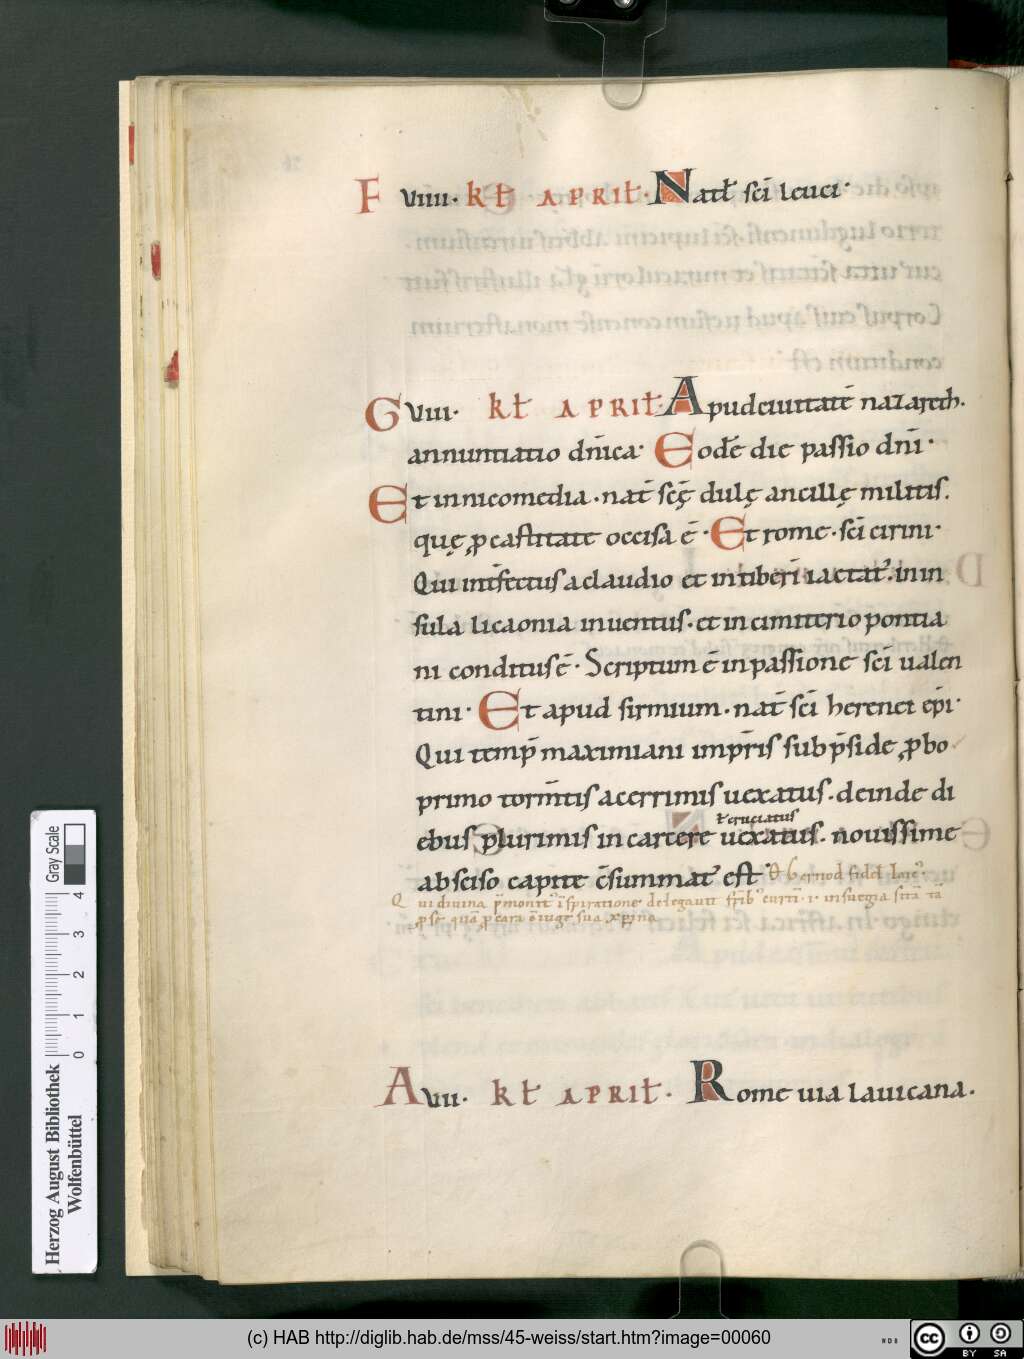 F VIIII· kł APRIł· Natł sc̄i leuci·
G VIII· kł APRIł· Apud ciuitatē nazareth.
annuntiatio dn̄ica· Eodē die passio dn̄i·
Et in nicomedia· nat̄ sc̄ę dulę ancillę militis.
quę ꝓ castitate occisa ē· Et rome· sc̄i cirini·
Qui int̄fectus a claudio et in tiberī iactatꝰ· in in
sula licaonia inuentus· et in cimiterio pontia
ni conditus ē· Scriptum ē in passione sc̄i ualen
tini· Et apud sirmium· nat̄ sc̄i herenei ep̄i·
Qui temp̄ maximiani imp̄ris sub p̄side ꝓbo
primo torm̄tis acerrimis uexatus· deinde di
ł cruciatus
ebus plurimis in carcere uexatus· nouissime
absciso capite c̄summatꝰ est· Ob bernod fidel laicꝰ·
Qui diuina p̄monitꝰ īspiratione delegauit fr̄ibꝰ curtī· i· in suegia sitā tā
ꝓ se quā ꝓ cara ōiuge sua xp̄ina
A VII· kł APRIł· Rome uia lauicana.
Herzog August Bibliothek
Wolfenbüttel
0 1 2 3 4
Gray Scale
(c) HAB http://diglib.hab.de/mss/45-weiss/start.htm?image=00060
WDB
cc BY SA